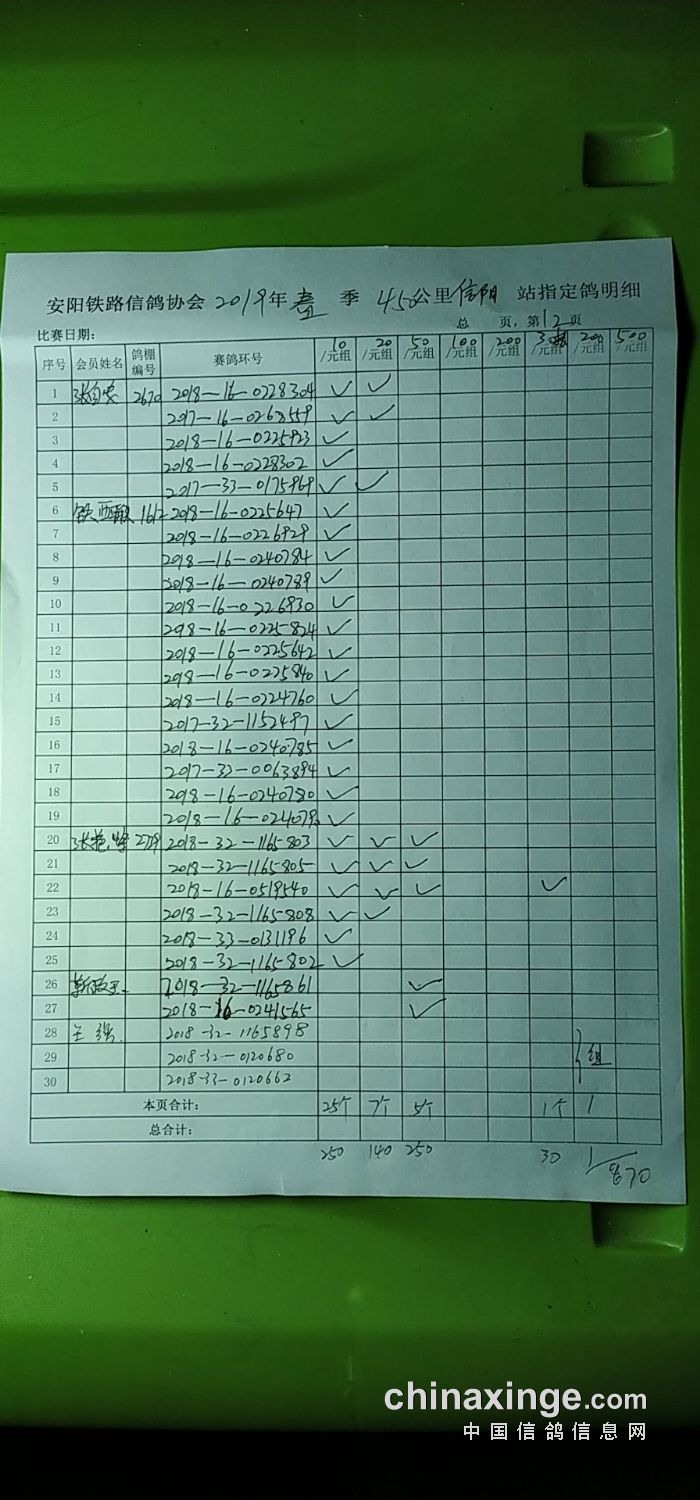 安阳铁路信鸽协会 2019年 春 季 450公里 信阳 站指定鸽明细
比赛日期: 总 页,第12页
序号 会员姓名 鸽棚编号 赛鸽环号 10/元组 20/元组 50/元组 100/元组 200/元组 /元组 200/元组 500/元组
1 2670 2018-16-0228304 ✓ ✓
2 2017-16-0268559 ✓ ✓
3 2018-16-0225923 ✓
4 2018-16-0228302 ✓
5 2017-33-0175969 ✓ ✓
6 1612 2018-16-0225647 ✓
7 2018-16-0226929 ✓
8 2018-16-0240784 ✓
9 2018-16-0240789 ✓
10 2018-16-0226930 ✓
11 2018-16-0225824 ✓
12 2018-16-0225642 ✓
13 2018-16-0225840 ✓
14 2018-16-0224760 ✓
15 2017-32-1152497 ✓
16 2018-16-0240785 ✓
17 2017-32-0063894 ✓
18 2018-16-0240780 ✓
19 2018-16-024079 ✓
20 2018-32-1165803 ✓ ✓ ✓
21 2018-32-1165805 ✓ ✓ ✓
22 2018-16-0519540 ✓ ✓ ✓ ✓
23 2018-32-1165808 ✓ ✓
24 2018-33-0131196 ✓
25 2018-32-1165802 ✓
26 2018-32-1165861 ✓
27 2018-16-0241565 ✓
28 王强 2018-32-1165898
29 2018-32-0120680 组
30 2018-33-0120662
本页合计: 25个 7个 5个 1个 1
总合计:
250 140 250 30 1
870
chinaxinge.com
中国信鸽信息网